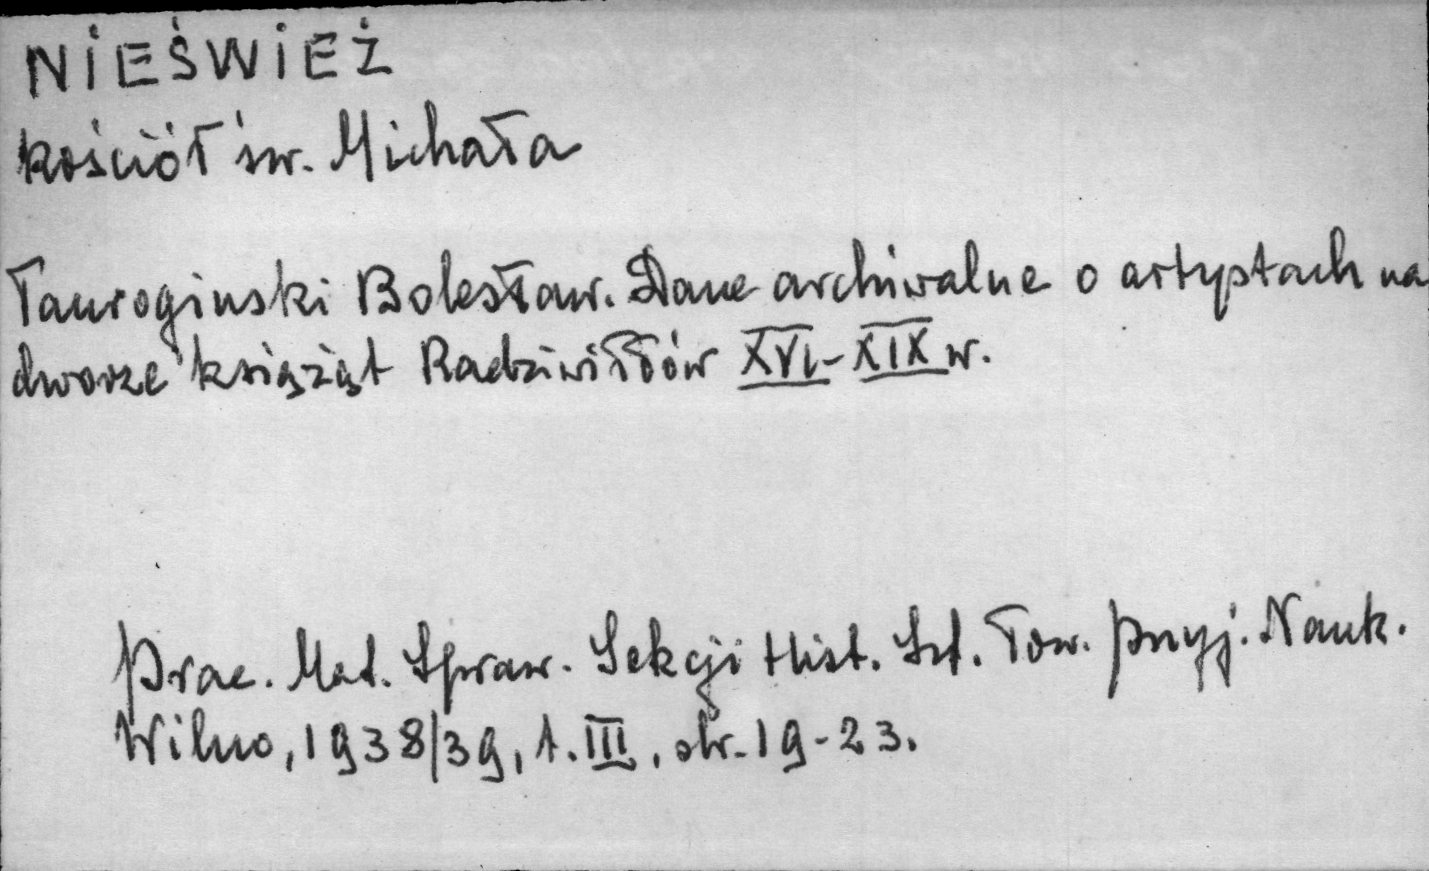 NIEŚWIEŻ
kościół św. Michała
Tauroginski Bolesław. Dane archiwalne o artystach na
dworze książąt Radziwiłłów XVI-XIX w.
Prac. Mat. Spraw. Sekcji Hist. Szt. Tow. Przyj. Nauk.
Wilno, 1938/39, t. III, str. 19-23.